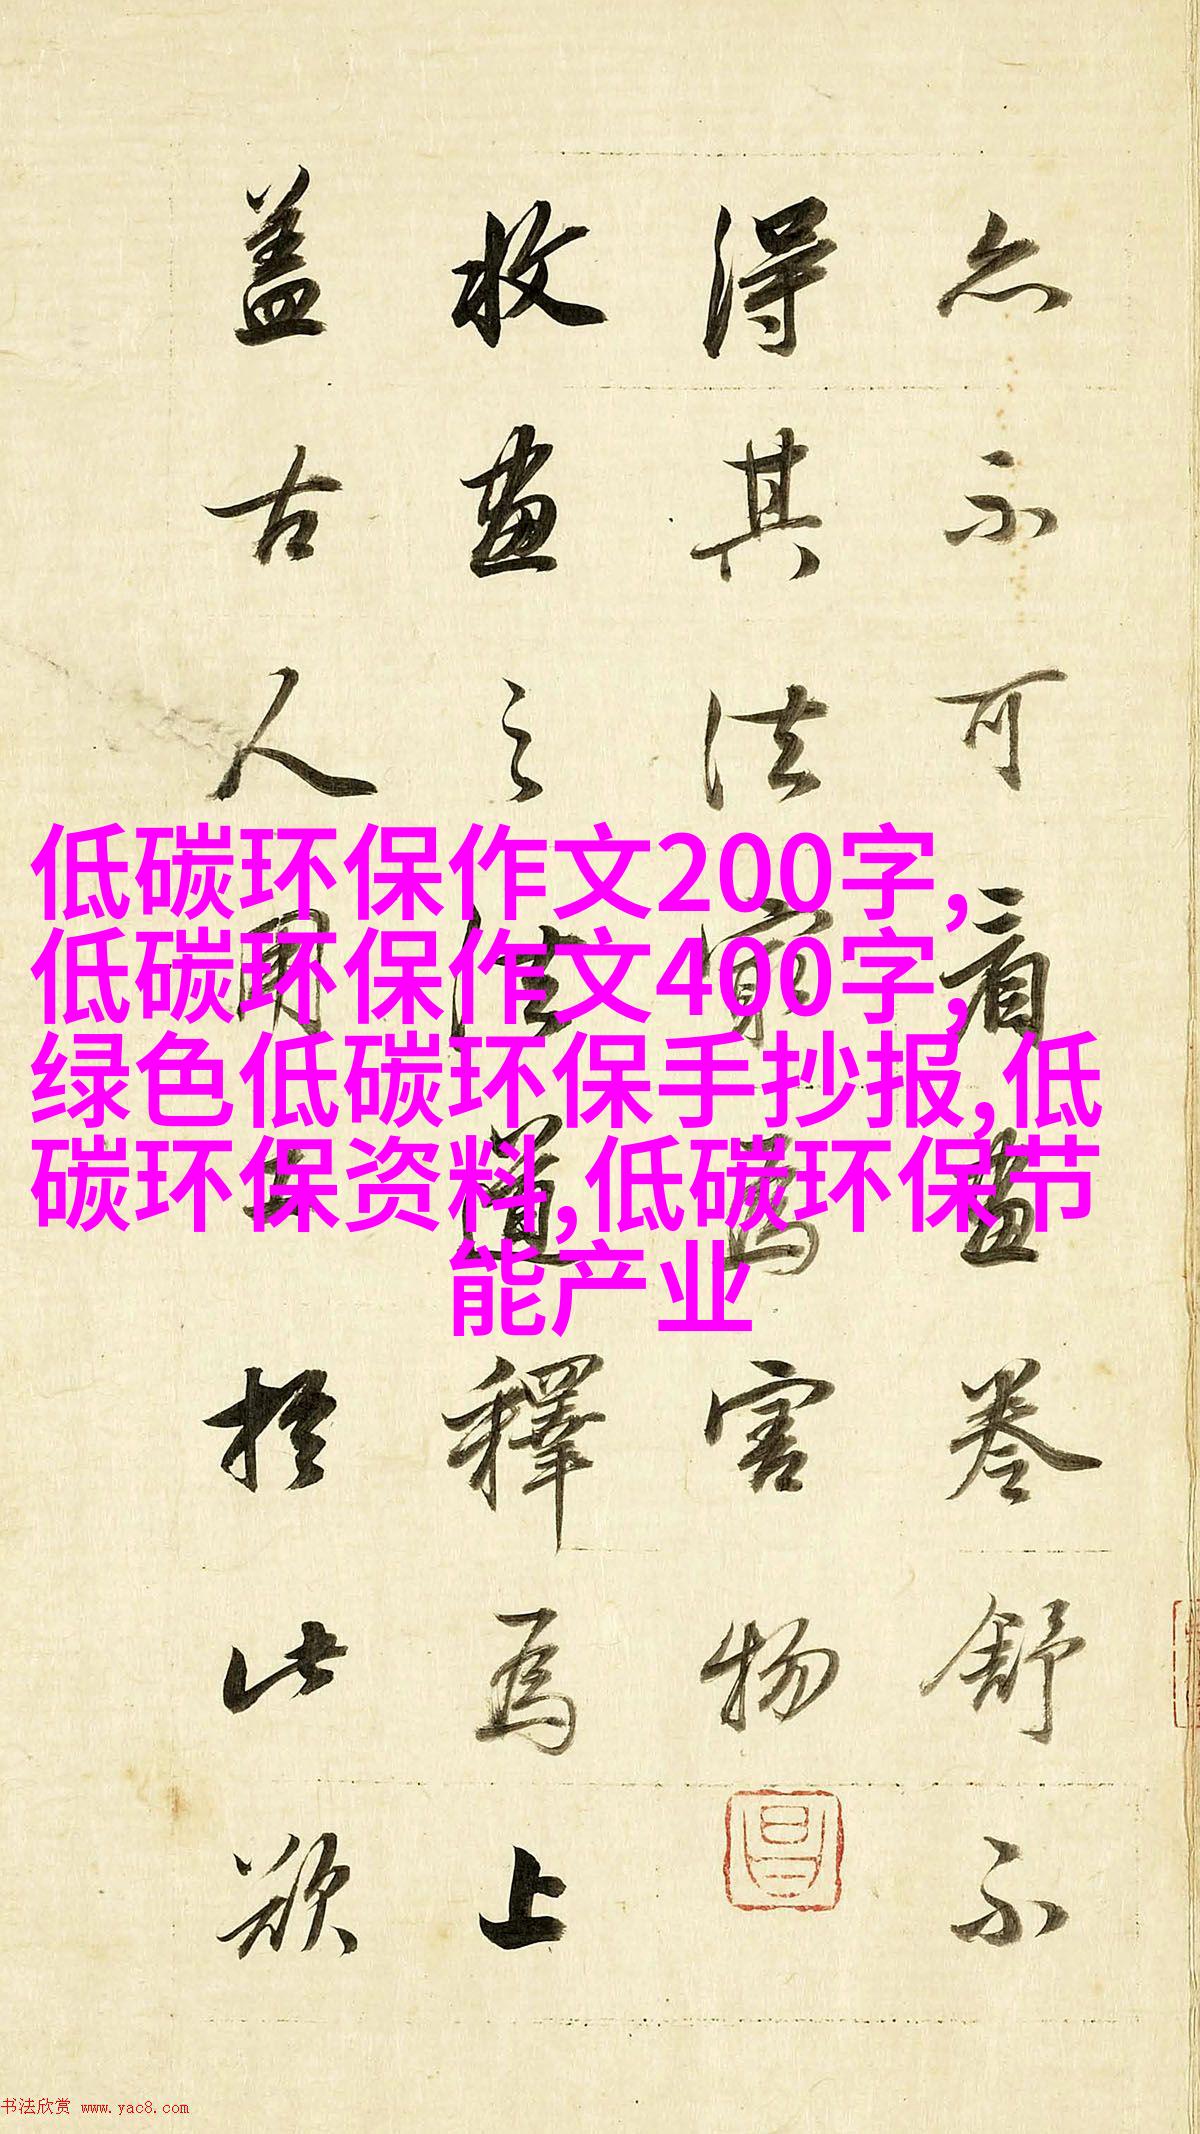 亦不可看畫卷舒不
得其法最為害物
昌
收畫之法道釋為上
蓋古人用工於此欲
低碳环保作文200字,
低碳环保作文400字,
绿色低碳环保手抄报,低
碳环保资料,低碳环保节
能产业
书法欣赏 www.yac8.com